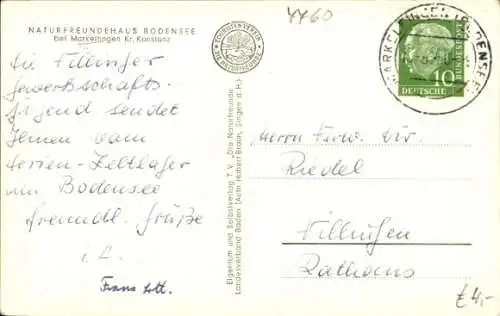 4460
NATURFREUNDEHAUS BODENSEE
bei Markelfingen Kr. Konstanz
Die Villinger
Gewerkschafts-
jugend sendet
Ihnen vom
Ferien-Zeltlager
am Bodensee
freundl. Grüße
i. A.
Franz
TOURISTEN-VEREIN
DIE NATURFREUNDE
Eigentum und Selbstverlag T. V. „Die Naturfreunde"
Landesverband Baden (Aufn. Hubert Braun, Singen a. H.)
MARKELFINGEN (BODENSEE)
10
DEUTSCHE
BUNDESPOST
Herrn Stadt
Riedel
Villingen
Rathaus
£4,-